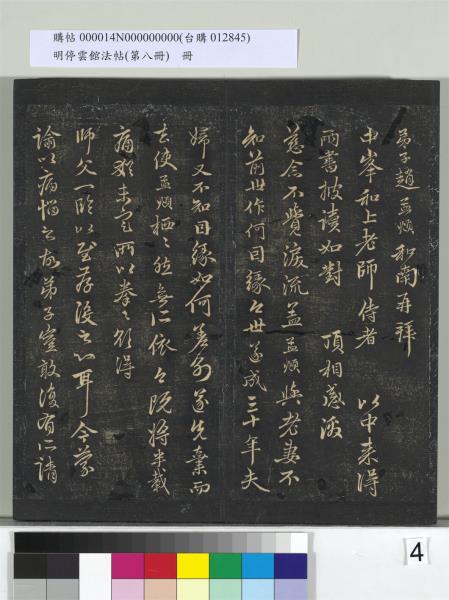 購帖 000014N000000000(台購 012845)
明停雲館法帖(第八冊) 冊
弟子趙孟頫和南再拜
中峯和上老師侍者 以中来得
兩書披讀如對 頂相感激
慈念不覺淚流盖孟頫與老妻不
知前世作何因緣今世遂成三十年夫
婦又不知因緣如何差別遂先棄而
去使孟頫栖栖然無所依今既將半載
痛猶未定所以拳拳欲得
師父一臨以至存沒之心耳今蒙
諭以病惱之故弟子豈敢復有所請
4